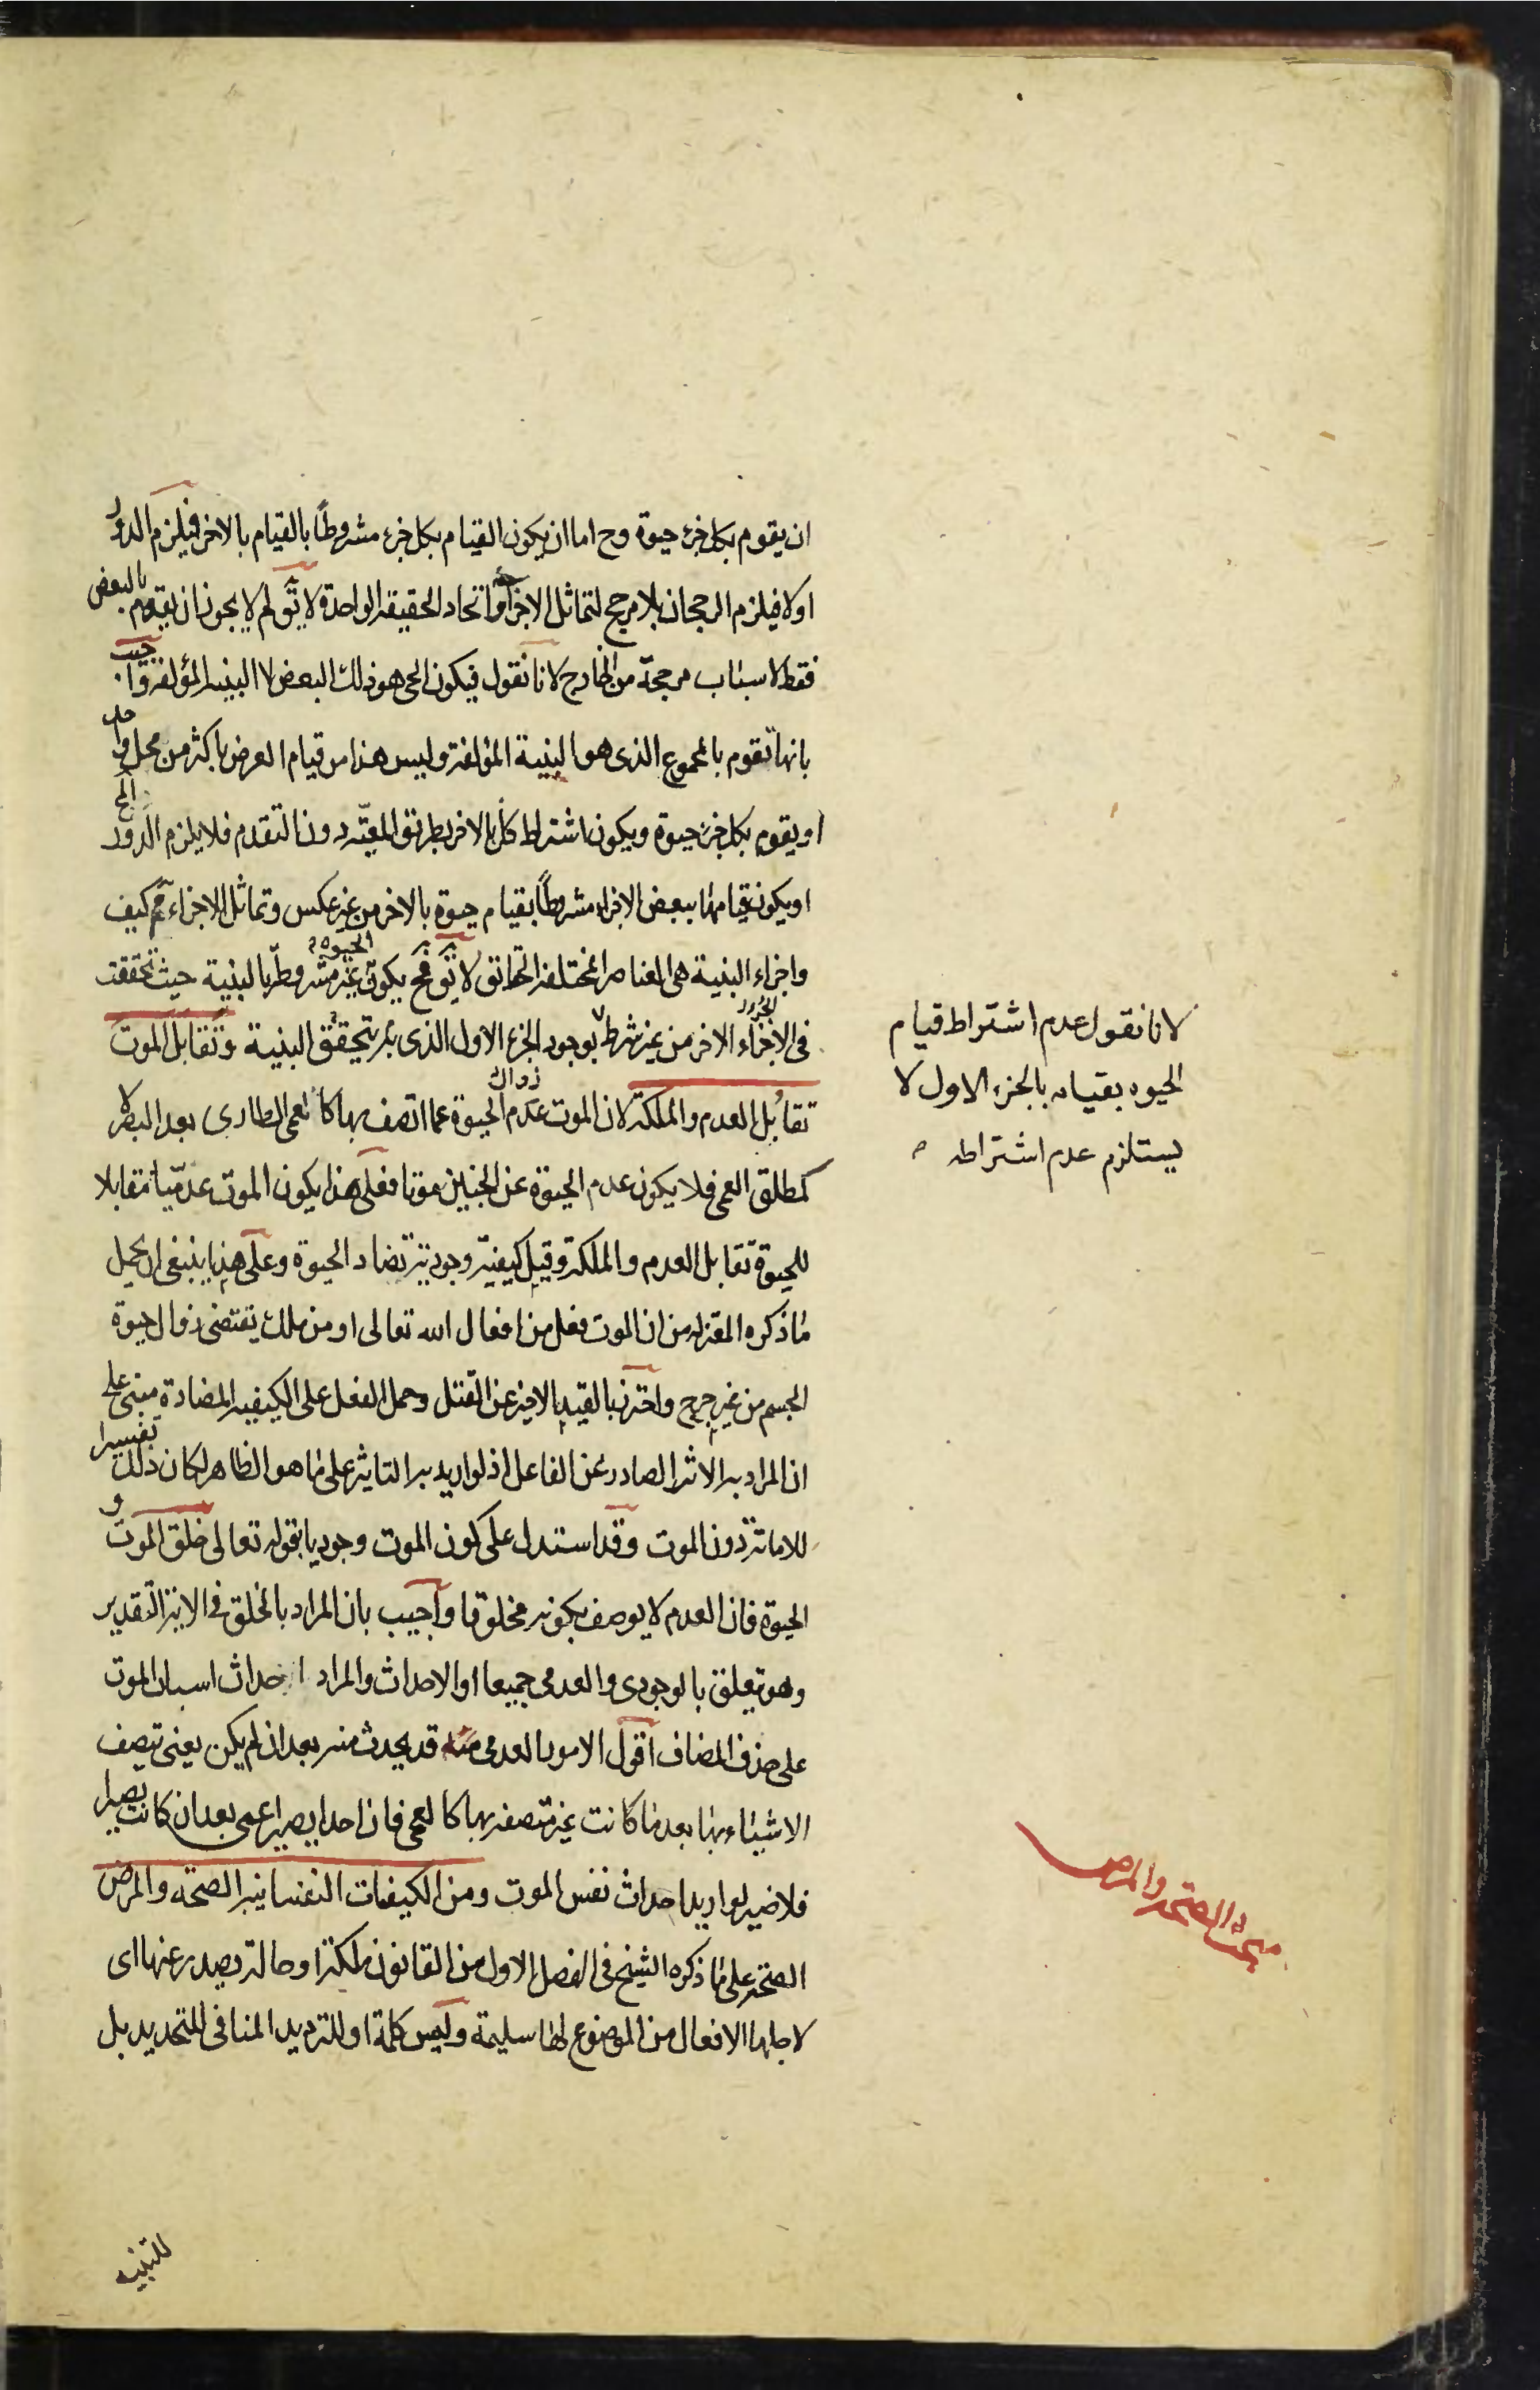 ان يقوم بكل جزء حيوة وح اما ان يكون القيام بكل جزء مشروطًا بالقيام بالاخر فيلزم الدور
اولا فيلزم الرجحان بلا مرجح لتماثل الاجزاء واتحاد الحقيقة الواحدة لا يق لم لا يجوز ان يقوم بالبعض
فقط لاسباب مرجحة من الخارج لانا نقول فيكون الحي هو ذلك البعض لا البنية المؤلفة واجيب
بانها تقوم بالمجموع الذى هو البنية المؤلفة وليس هذا من قيام العرض باكثر من محل واحد
او يقوم بكل جزء حيوة ويكون اشتراط كل بالاخر بطريق المعية دون التقدم فلا يلزم الدور المح
او يكون قيامها ببعض الاجزاء مشروطًا بقيام حيوة بالاخر من غير عكس وتماثل الاجزاء مم كيف
واجزاء البنية هى العناصر المختلفة الحقائق لا يق فح يكون الحيوة غير مشروطة بالبنية حيث تحققت
فى الاجزاء الاخر من غير شرط بوجود الجزء الاول الذى به يتحقق البنية وتقابل الموت
تقابل العدم والملكة لان الموت عدم زوال الحيوة عما اتصف بها كالعمى الطارى بعد البصر لا
كمطلق العمى فلا يكون عدم الحيوة عن الجنين موتا فعلى هذا يكون الموت عدميا مقابلا
للحيوة تقابل العدم والملكة وقيل كيفية وجودية تضاد الحيوة وعلى هذا ينبغى ان يحمل
ما ذكره المعتزلة من ان الموت فعل من افعال الله تعالى او من ملك يقتضى زوال حيوة
الجسم من غير جرح واحترز بالقيد الاخير عن القتل وحمل الفعل على الكيفية المضادة مبنى على
ان المراد به الاثر الصادر عن الفاعل اذ لو اريد به التاثير على ما هو الظاهر لكان ذلك تفسيرا
للاماتة دون الموت وقد استدل على كون الموت وجوديا بقوله تعالى خلق الموت و
الحيوة فان العدم لا يوصف بكونه مخلوقا واجيب بان المراد بالخلق فى الاية التقدير
وهو يتعلق بالوجودى والعدمى جميعا او الاحداث والمراد احداث اسباب الموت
على حذف المضاف اقول الامور العدمى منه قد يحدث منه بعد ان لم يكن يعنى تتصف
الاشياء بها بعد ما كانت غير متصفة بها كالعمى فان احدا يصير اعمى بعد ان كانت بصيرا
فلا ضير لو اريد احداث نفس الموت ومن الكيفيات النفسانية الصحة والمرض
الصحة على ما ذكره الشيخ فى الفصل الاول من القانون ملكة او حالة يصدر عنها اى
لاجلها الافعال من الموضوع لها سليمة وليس كلمة او للترديد المنافى للتحديد بل
للتنبيه
لانا نقول عدم اشتراط قيام
الحيوه بقيامه بالجزء الاول لا
يستلزم عدم اشتراطه
مبحث الصحة والمرض